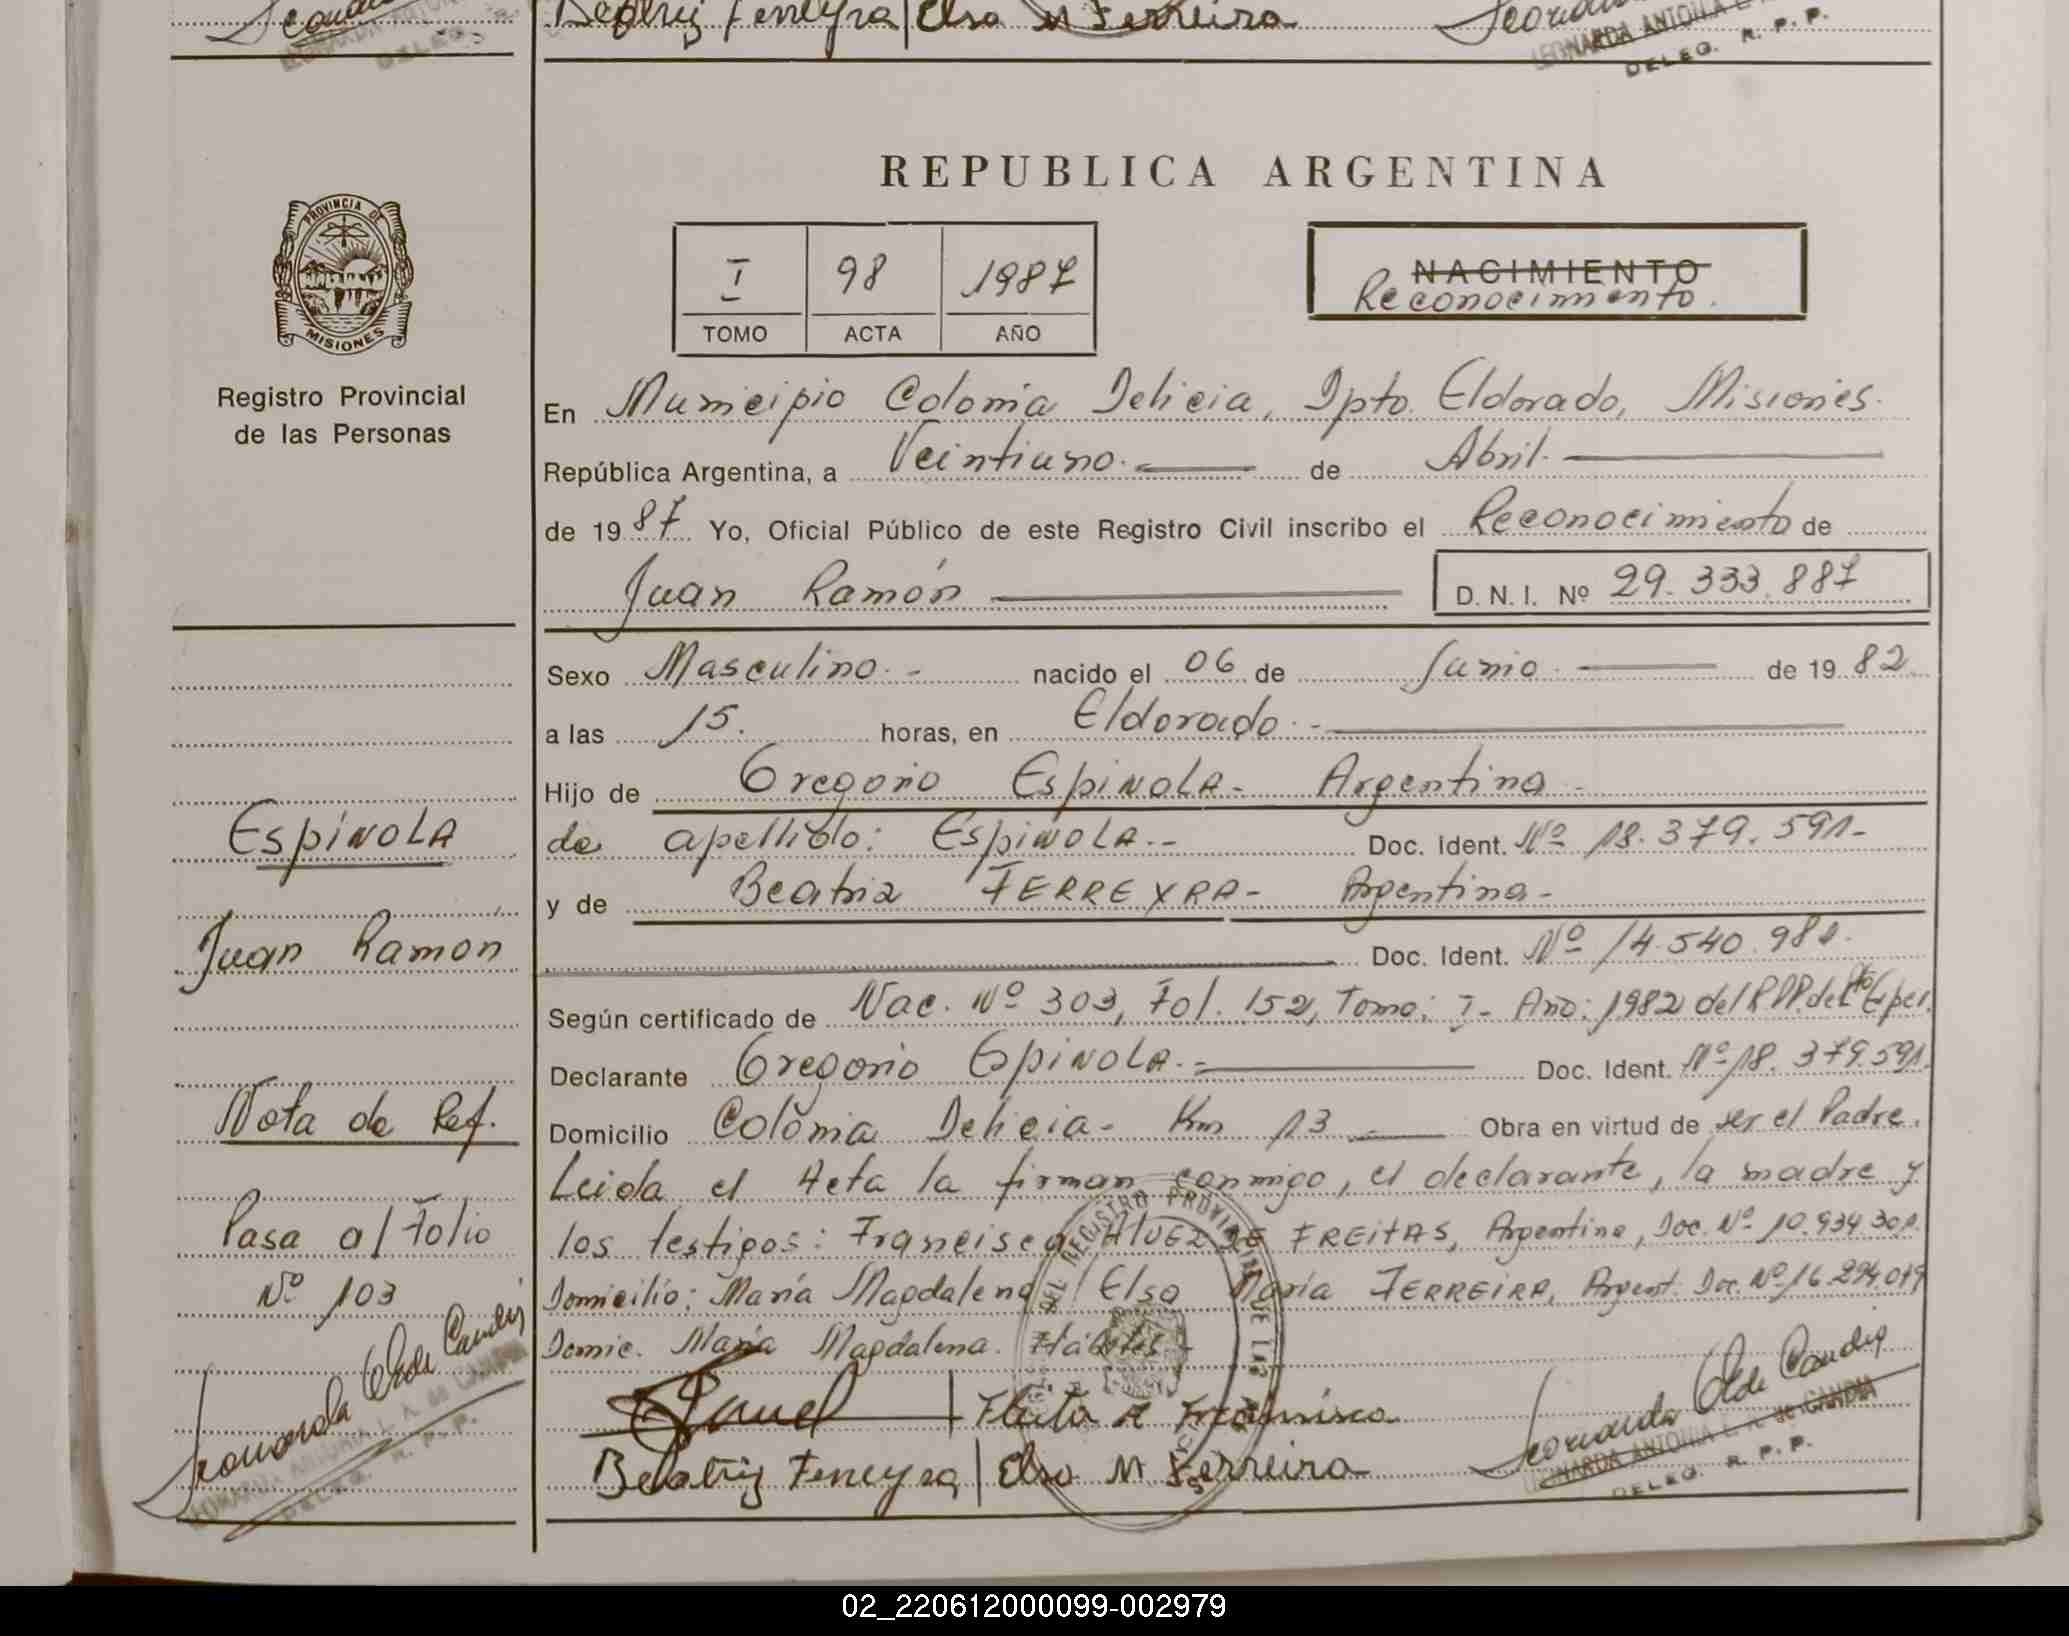 Beatriz Ferreyra | Elsa M Ferreira
LEONARDA ANTONIA
DELEG. R. P. P.
REPUBLICA ARGENTINA
PROVINCIA DE
MISIONES
Registro Provincial
de las Personas
I 98 1987
TOMO ACTA AÑO
NACIMIENTO
Reconocimiento.
En Municipio Colonia Delicia, Dpto. Eldorado, Misiones.
República Argentina, a Veintiuno. de Abril.
de 1987. Yo, Oficial Público de este Registro Civil inscribo el Reconocimiento de
Juan Ramón D. N. I. Nº 29.333.887
Sexo Masculino.- nacido el 06 de Junio. de 1982
a las 15. horas, en Eldorado.-
Hijo de Gregorio EspiNoLA- Argentina-
de apellido: EspiNoLA.- Doc. Ident. Nº 18.379.591-
y de Beatriz FERREYRA- Argentina-
Doc. Ident. Nº 14.540.981.
Según certificado de Nac. Nº 303, Fol. 152, Tomo: I- Año: 1982 del
Declarante Gregorio EspiNoLA.- Doc. Ident. Nº 18.379.591.
Domicilio Colonia Delicia- Km 13 Obra en virtud de ser el Padre.
Leida el Acta la firman conmigo, el declarante, la madre y
los testigos: Francisca DE FREITAS, Argentina, Doc. Nº 10.934.301.
Domicilio: María Magdalena/ Elsa María FERREIRA, Argent. Doc. Nº 16.294.079
Domic. María Magdalena.
Francisca
Beatriz Ferreyra | Elsa M Ferreira
LEONARDA ANTONIA L. A. de CANDIA
DELEG. R. P. P.
EspiNoLA
Juan Ramon
Nota de Ref.
Pasa al Folio
Nº 103
LEONARDA ANTONIA L. A. de CANDIA
DELEG. R. P. P.
02_220612000099-002979